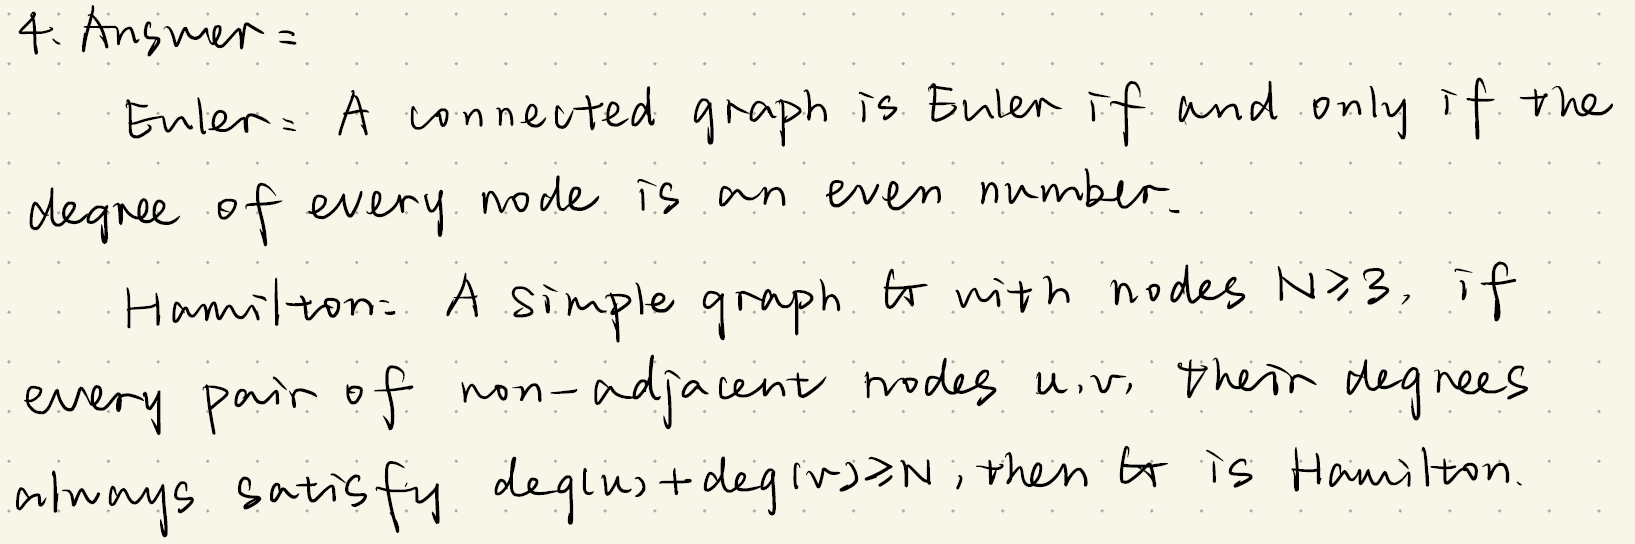 4. Answer:
Euler: A connected graph is Euler if and only if the
degree of every node is an even number.
Hamilton: A simple graph G with nodes N≥3, if
every pair of non-adjacent nodes u,v, their degrees
always satisfy deg(u)+deg(v)≥N, then G is Hamilton.